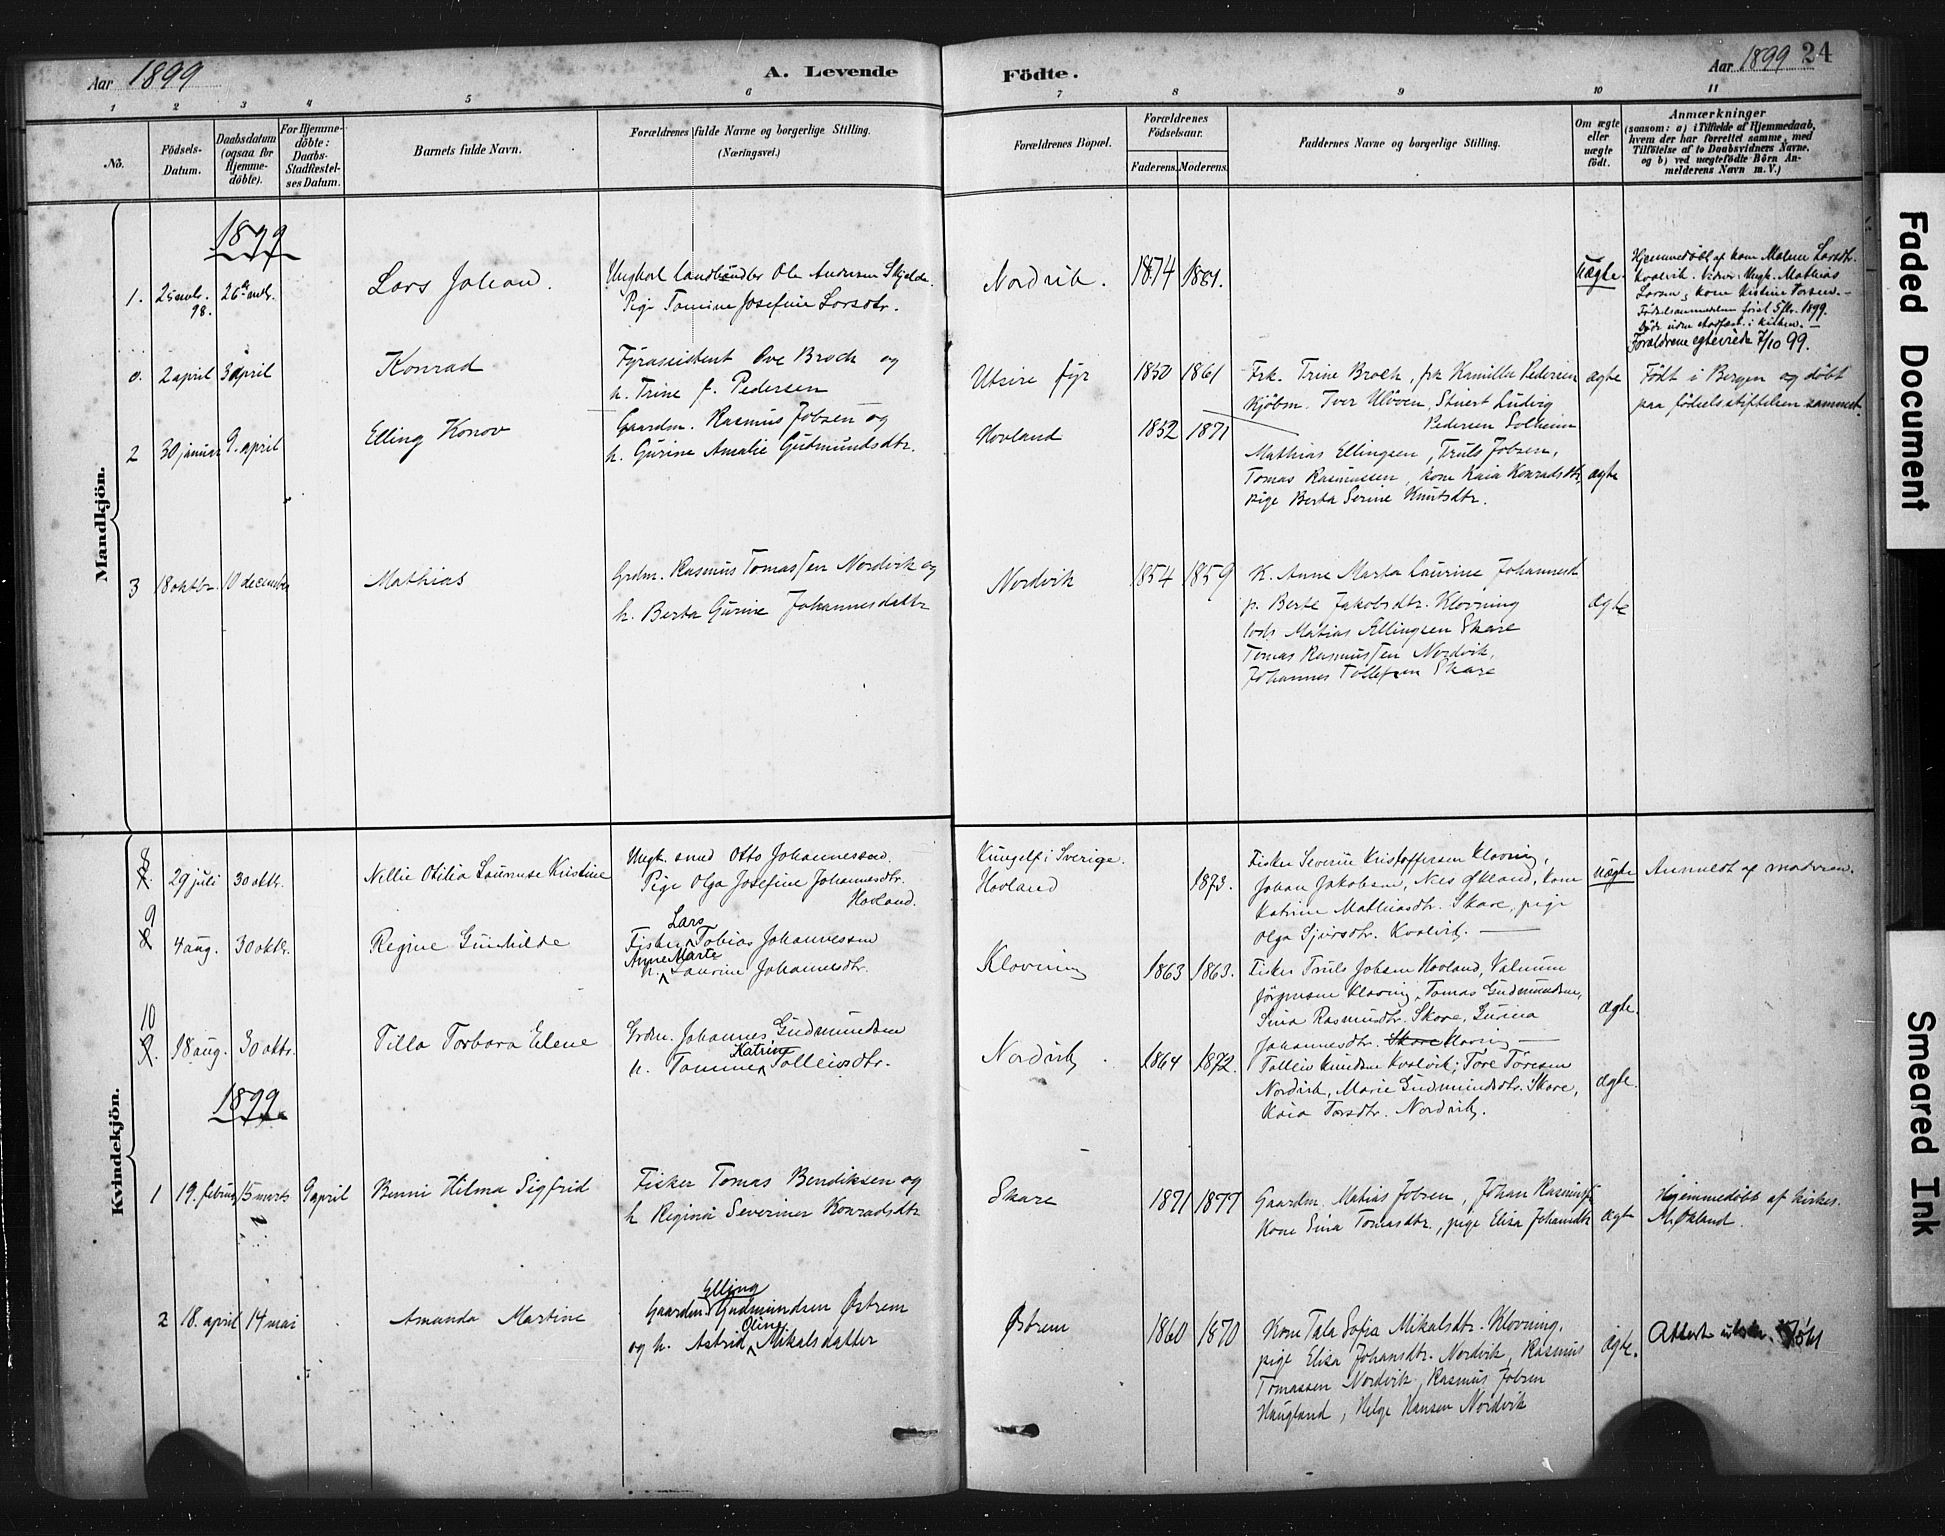 Aar 1899
A. Levende Födte.
Aar 1899 24
1 2 3 4 5 6 7 8 9 10 11
Nö.
Födsels-Datum.
Daabsdatum (ogsaa for Hjemme-döbte).
For Hjemme-döbte: Daabs-Stadfæstel-ses Datum.
Barnets fulde Navn.
Forældrenes fulde Navne og borgerlige Stilling. (Næringsvei.)
Forældrenes Bopæl.
Forældrenes Födselsaar.
Faderens. Moderens.
Faddernes Navne og borgerlige Stilling.
Om ægte eller uægte födt.
Anmærkninger
(saasom: a) i Tilfælde af Hjemmedaab,
hvem der har forrettet samme, med
Tilföielse af to Daabsvidners Navne,
og b) ved uægtefödte Börn An-
melderens Navn m. V.)
Mandkjön.
1899
1. 98. Lars Johan.
Ungkarl Landhandler Ole Andersen Skjelde.
Pige Tomine Josefine Larsdtr.
Nordvik. 1874 1881. uægte
Hjemmedøbt af kone Malene Larsdtr.
Kvalvik. Vidner: Ungk. Mathias
Larsen, kone Kistine
Fødselsanmeldelse først 5/ 1899.
Døde uden stadfæst. i kirken.
Forældrene egteviede 7/10 99.
0. 2 april 3 april Konrad
Fyrassistent Ove Broch og
h. Trine f. Pedersen
Utsire fyr 1850 1861
Frk. Trine Broch, frk Kamilla Pedersen
Kjøbm. Iver Ulöven, Stuert Ludvig
Pedersen Solheim
ægte
Født i Bergen og døbt
paa fødselsstiftelsen sammest.
2 30 januar 9. april Elling Konov
Gaardm. Rasmus Jobsen og
h. Gurine Amalie Gudmundsdtr.
Hovland 1852 1871
Mathias Ellingsen, Truls Jobsen,
Tomas Rasmussen, kone Kaia Konradsdtr,
pige Berta Serine Knutsdtr.
ægte
3 18 oktbr. 10 december Mathias
Grdm. Rasmus Tomassen Nordvik og
h. Berta Gurine Johannesdatter
Nordvik 1854 1859
K. Anne Marta Laurine Johannesd
p. Berte Jakobsdtr. Klovning
Matias Ellingsen Skare
Tomas Rasmussen Nordvik,
Johannes Tollefsen Skare
ægte
Kvindekjön.
8 29 juli 30 oktbr. Nellie Otilia Kristine
Ungk. smed Otto Johannessen.
Pige Olga Josefine Johannesdtr.
Hovland.
Kungelf i Sverige.
Hovland 1873.
Fisker Severin Kristoffersen Klovning,
Johan Jakobsen, Nils Økland, kone
Katrine Mathiasdtr. Skare, pige
Olga Sjursdtr. Kvalvik.
uægte Anmeldt af moderen.
9 4 aug. 30 oktbr. Regine Gunhilde
Fisker Lars Tobias Johannessen
h. Anne Marte Laurine Johannesdtr.
Klovning 1863 1863.
Fisker Truls Jobsen Hovland, Valnum
Jørgensen Klovning, Tomas Gudmundsen,
Sina Rasmusdtr. Skare,
Johannesdtr. Skare Klovning
ægte.
10 18 aug. 30 oktbr. Tilla Torbara Elene
Grdm. Johannes Gudmundsen
h. Tomine Katrine Tolleivsdtr.
Nordvik 1864 1872.
Tolleiv Knudsen Kvalvik; Tore Toresen
Nordvik, Marie Gudmundsdtr. Skare,
Kaia Torsdtr. Nordvik.
ægte.
1899
1 19. februar 15 marts 9 april Benni Hilma Sigfrid
Fisker Tomas Bendiksen og
h Regina Severine Konradsdtr
Skare 1871 1877
Gaardm. Matias Jobsen, Johan Rasmussen
Kone Sina Tomasdtr., pige Elisa Johansdtr
ægte
Hjemmedøbt af kirkes.
M. Økland.
2 18. april 14 mai Amanda Martine
Gaardm. Elling Gudmundsen Østrem
og h. Astrid Oline Mikalsdatter
Østrem 1860 1870
Kone Tala Sofia Mikalsdtr. Klovning,
pige Elisa Johansdtr. Nordvik, Rasmus
Tomassen Nordvik, Rasmus Jobsen
Haugland, Helge Hansen Nordvik
ægte. Attest
Faded Document
Smeared Ink